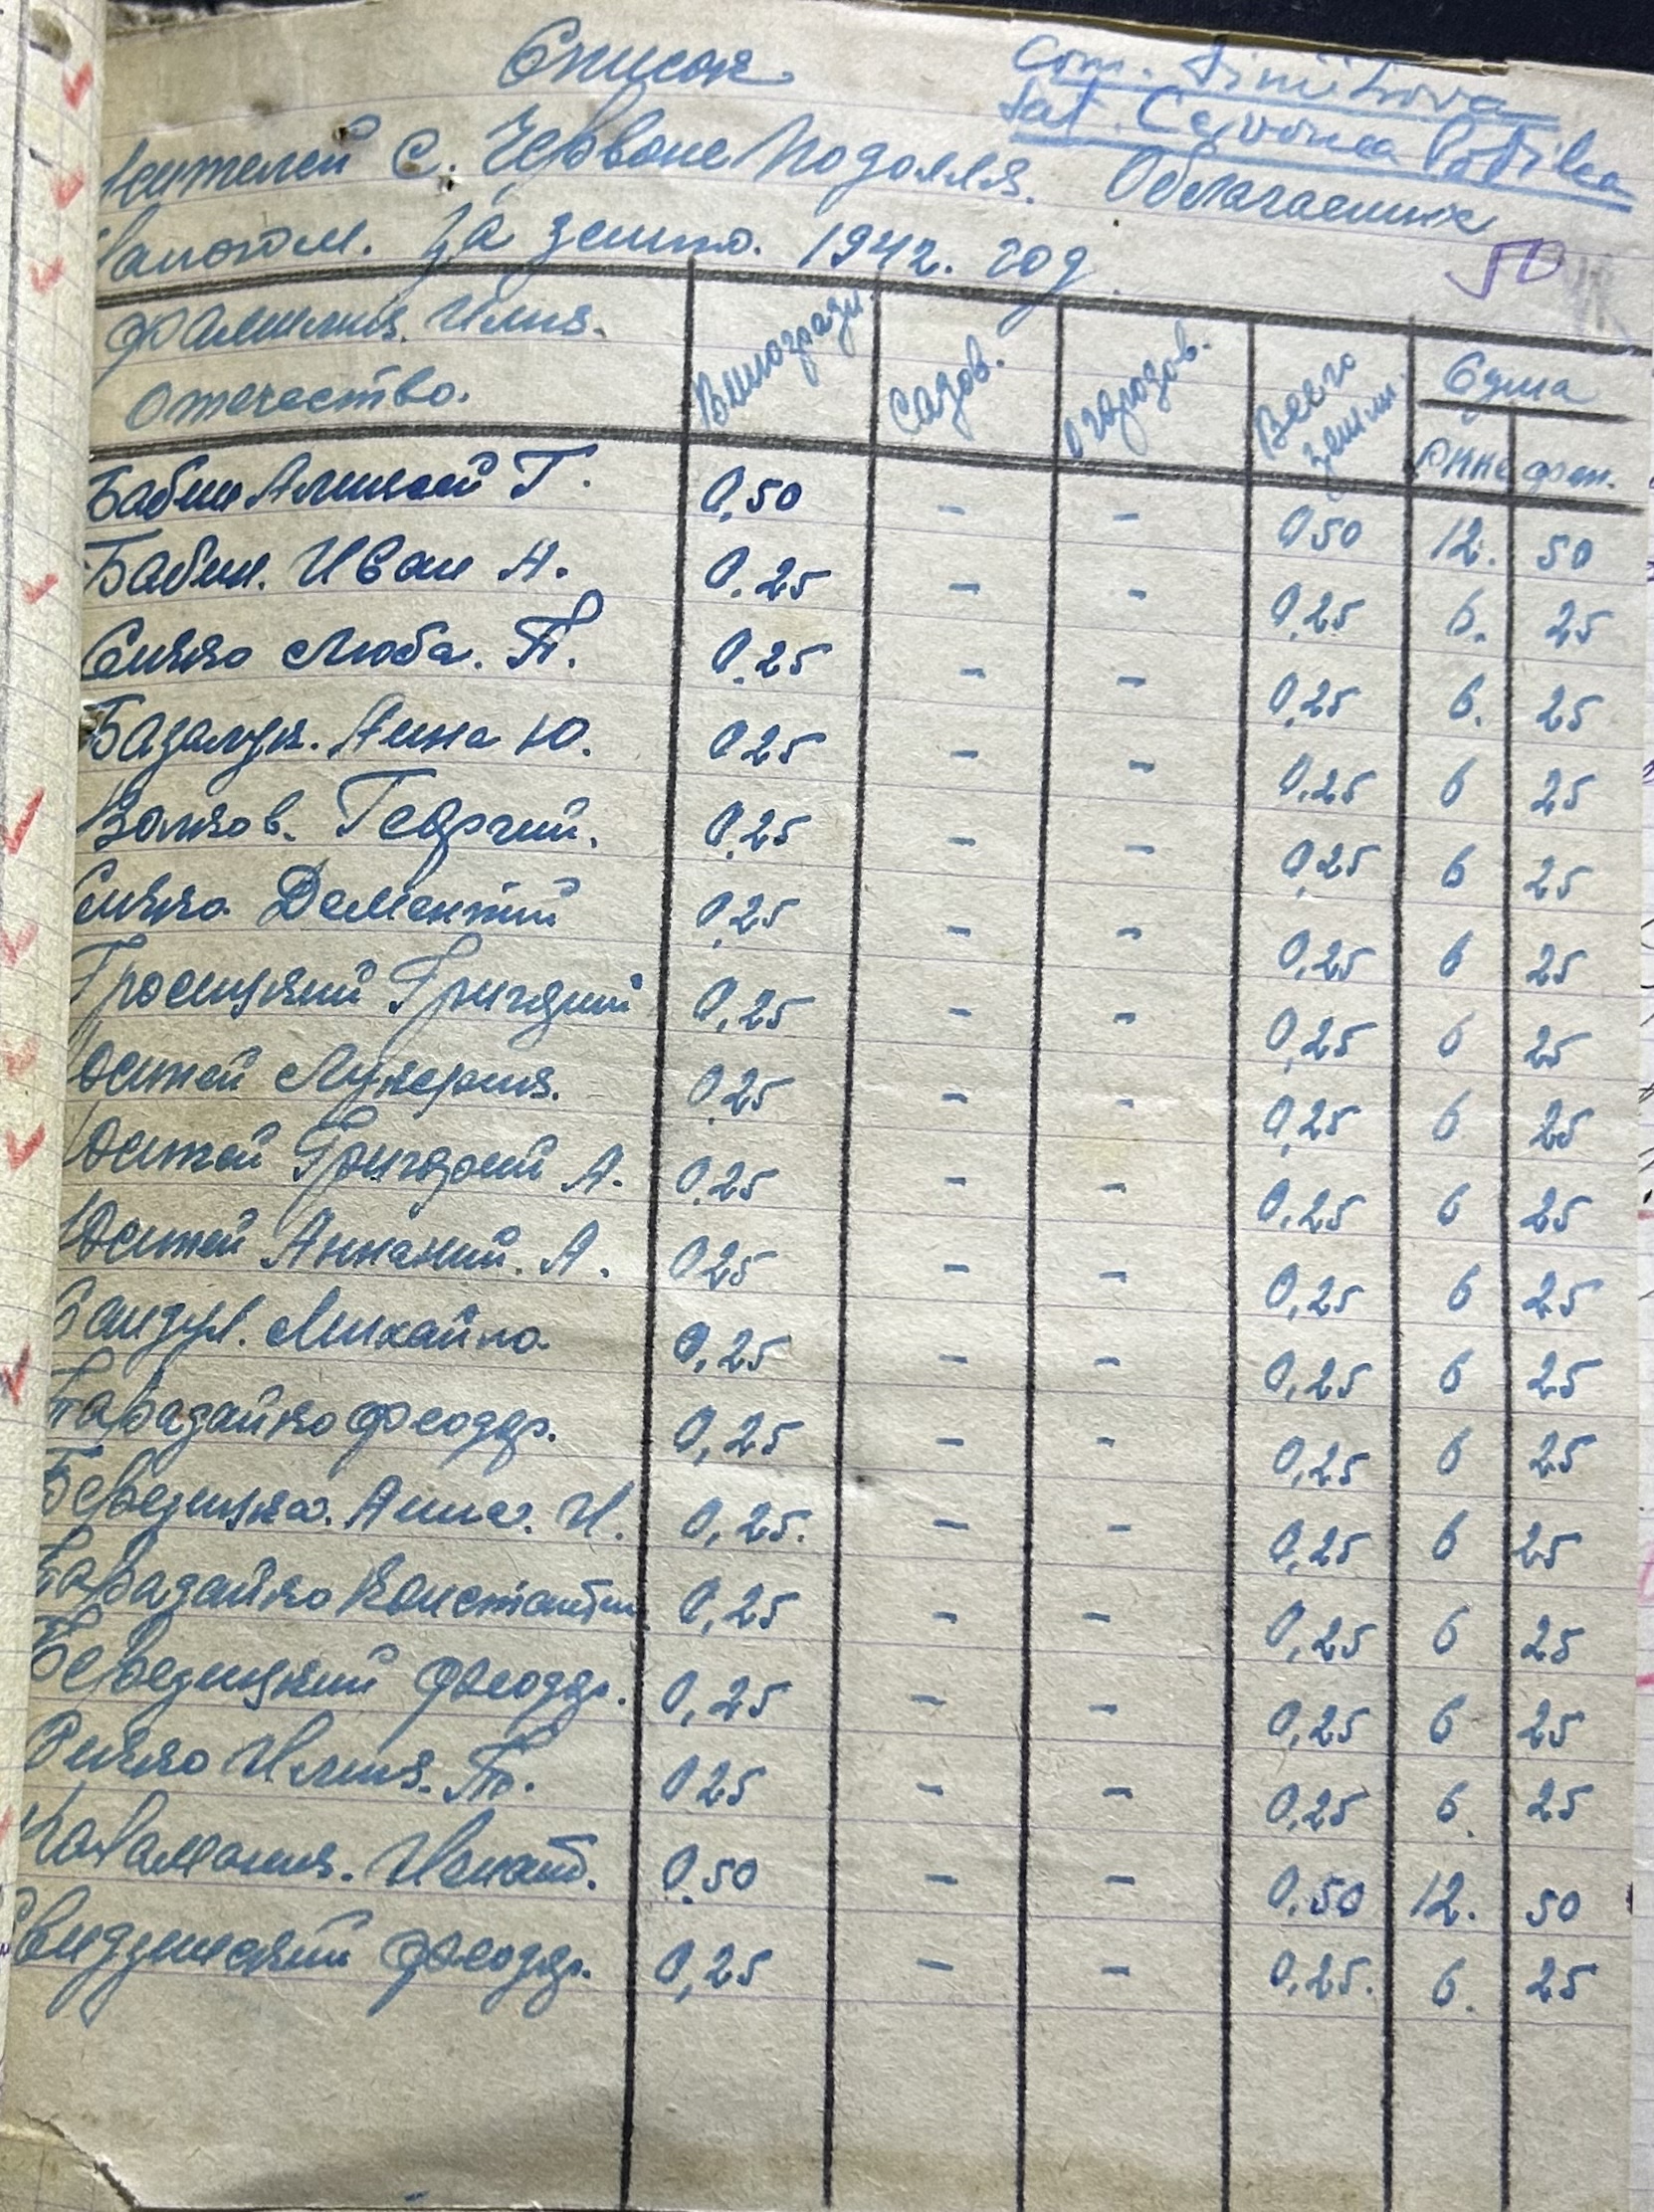 Список
Com. Dimitrova
Sat. Cervonea Podilea
Жителей с. Червоне Подолля. Облагаемых
налогом. За землю. 1942. год.
50
Фамилия. Имя. Отчество. Виноградн. Садов. Огородов. Всего земли. Сума
Рмне фен.
Бабин Алексей Г. 0,50 - - 0,50 12. 50
Бабин. Иван Н. 0.25 - - 0,25 6. 25
Сняко Люба. П. 0.25 - - 0,25 6. 25
Базалук. Анна Ю. 0,25 - - 0,25 6 25
Волков. Георгий. 0,25 - - 0,25 6 25
Дементий 0,25 - - 0,25 6 25
Григорий 0,25 - - 0,25 6 25
Лукерия. 0,25 - - 0,25 6 25
Григорий А. 0,25 - - 0,25 6 25
Ананий. А. 0,25 - - 0,25 6 25
Сандул. Михайло. 0,25 - - 0,25 6 25
Феодор. 0,25 - - 0,25 6 25
Анна. И. 0,25. - - 0,25 6 25
Константин 0,25 - - 0,25 6 25
Феодор. 0,25 - - 0,25 6 25
Илия. П. 0,25 - - 0,25 6. 25
Игнат. 0,50 - - 0,50 12. 50
Свидзинский Феодор. 0,25 - - 0,25. 6. 25